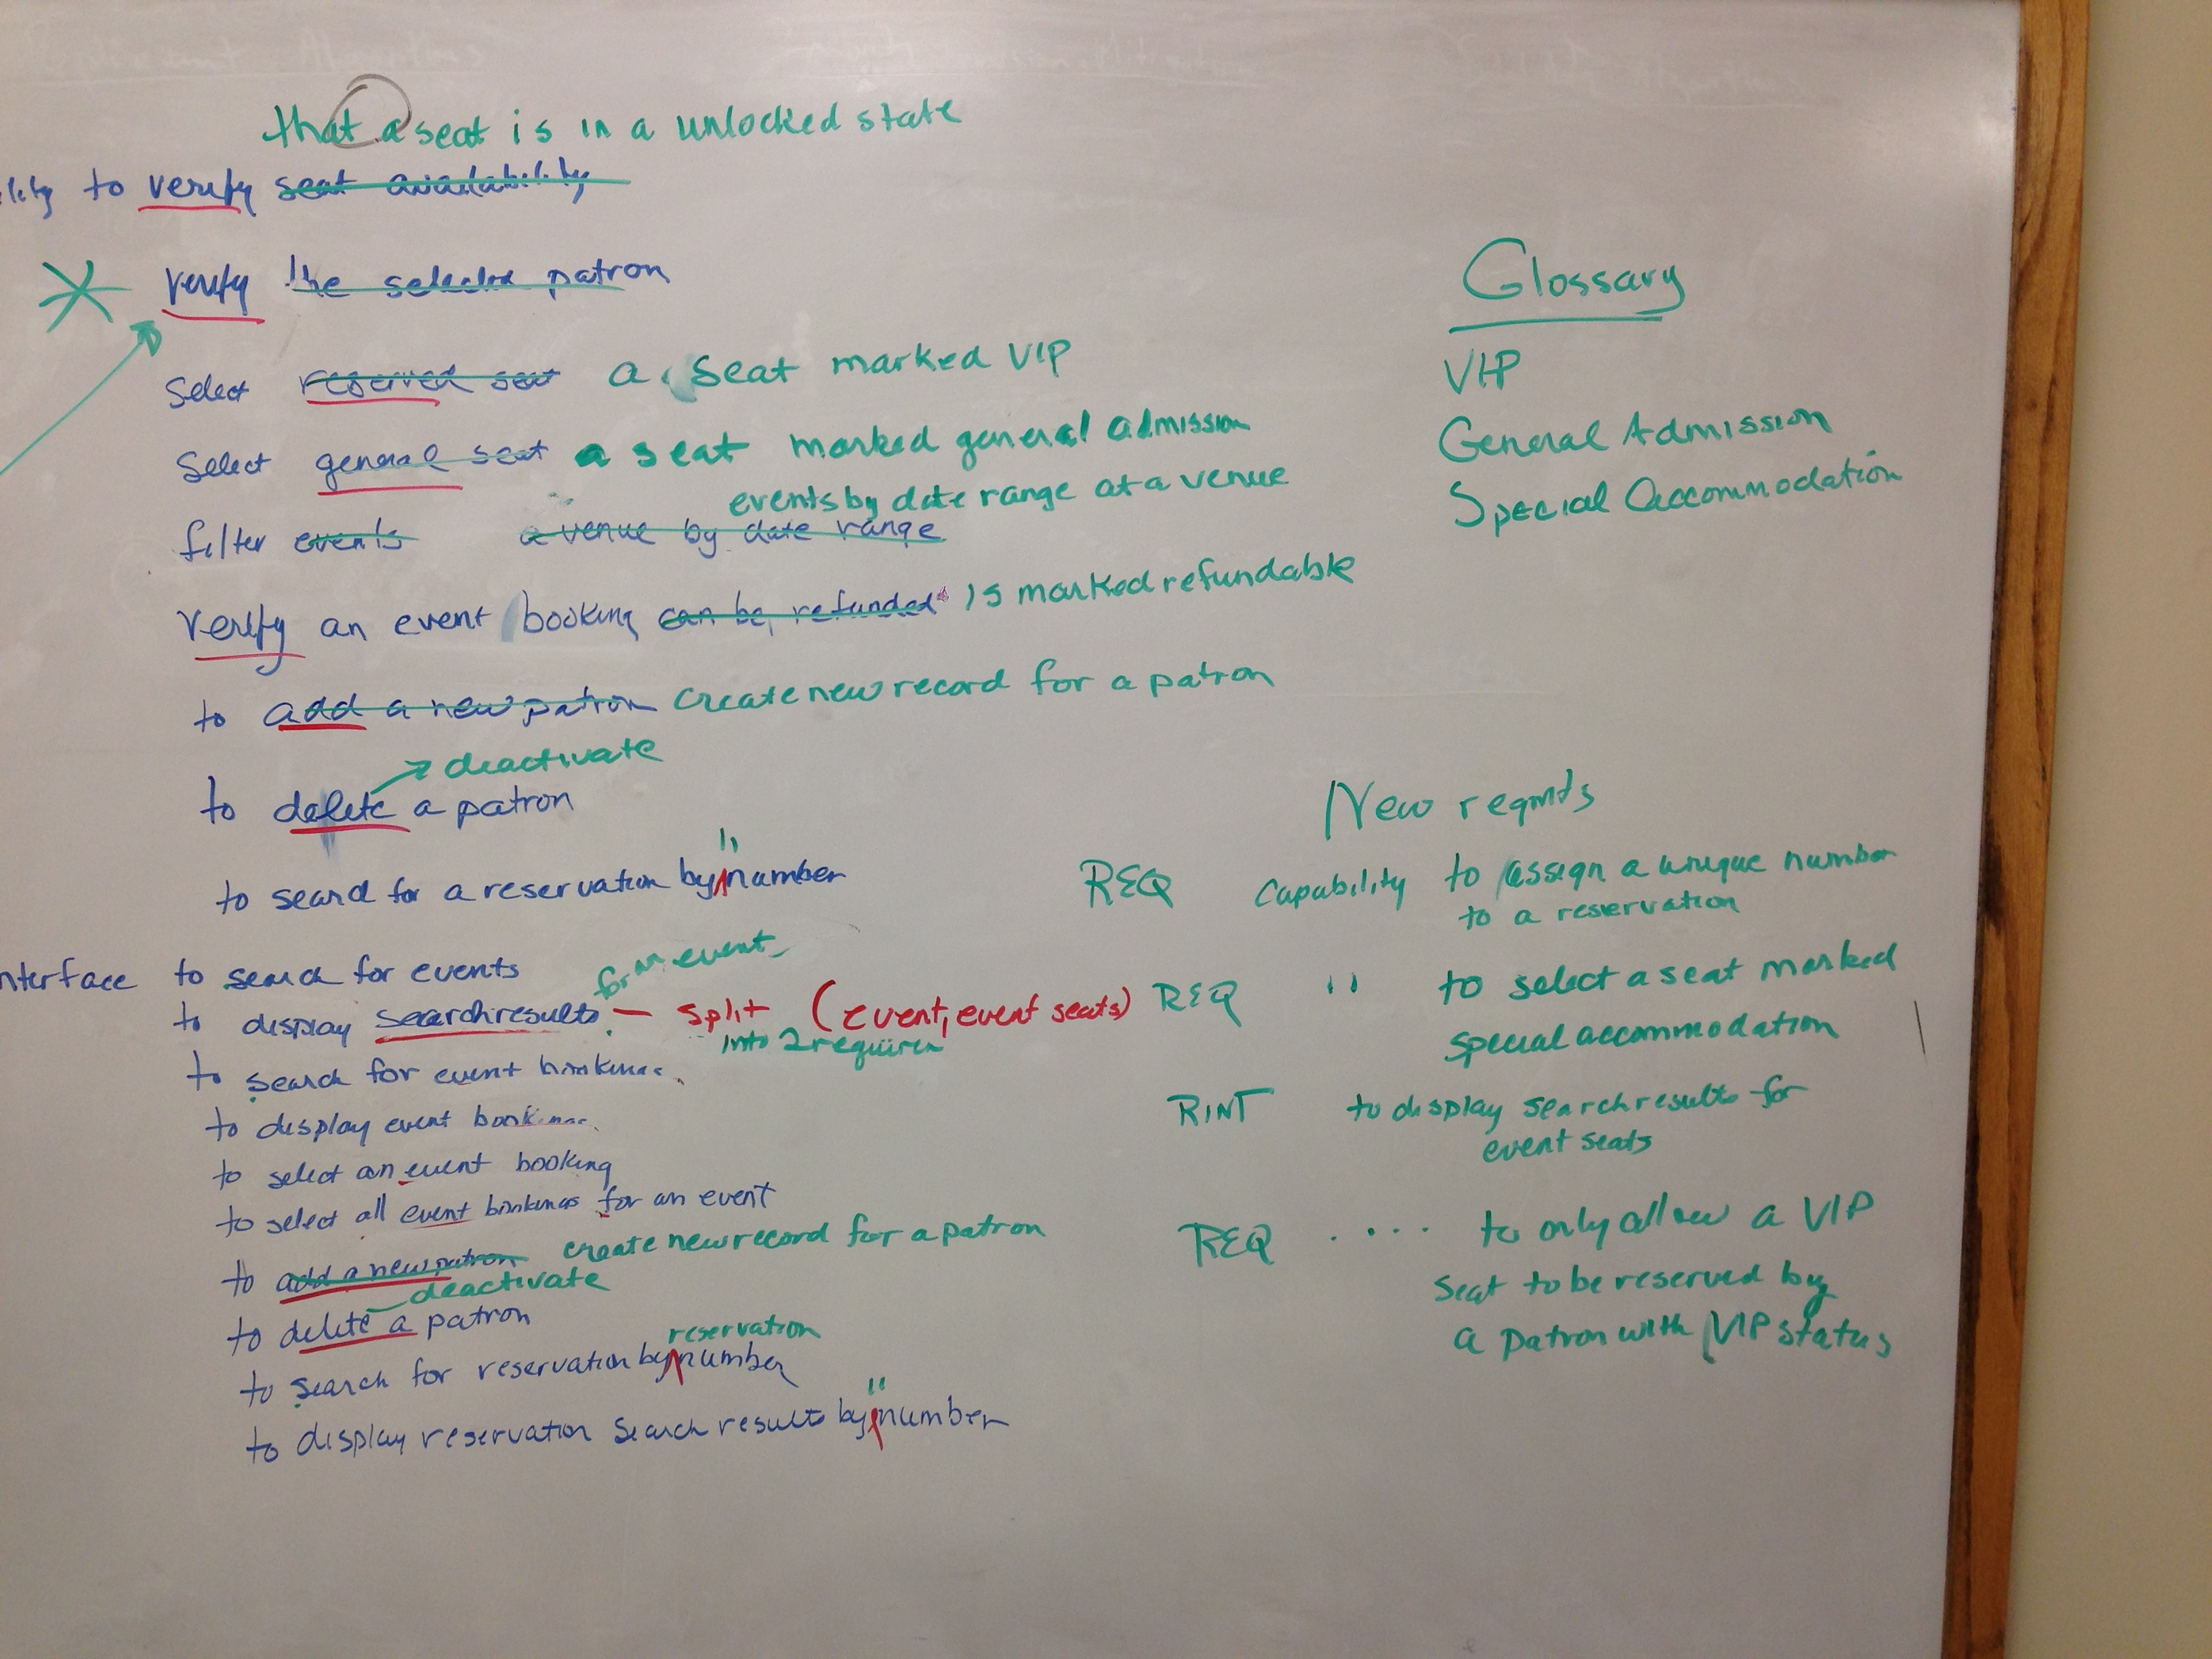 that a seat is in a unlocked state
to verify seat availability
verify the selected patron
Select reserved seat a seat marked VIP
Select general seat a seat marked general admission
events by date range at a venue
filter events a venue by date range
verify an event booking can be refunded is marked refundable
to add a new patron create new record for a patron
deactivate
to delete a patron
"
to search for a reservation by number
nterface to search for events
for an event
to display search results - split (event, event seats)
into 2
to search for event bookings
to display event bookings
to select an event booking
to select all event bookings for an event
to add a new patron create new record for a patron
deactivate
to delete a patron
reservation
to search for reservation by number
"
to display reservation search results by number
Glossary
VIP
General Admission
Special Accommodation
New reqmts
REQ Capability to assign a unique number
to a reservation
REQ " to select a seat marked
special accommodation
RINT to display search results for
event seats
REQ .... to only allow a VIP
seat to be reserved by
a patron with VIP status